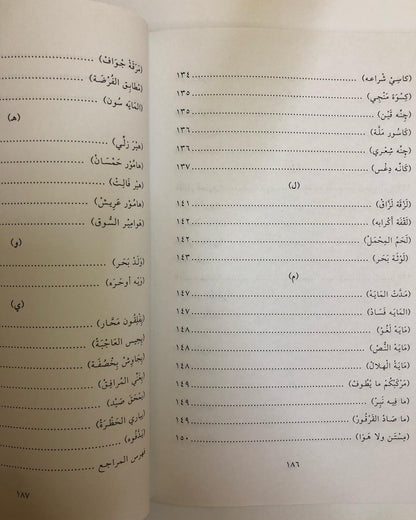 (كَاسِيْ شْرَاعَه) ........ ١٣٤
(كِسْرَهْ مَنْجِي) ........ ١٣٥
(جِنَّه قَيْن) ........ ١٣٥
(كَاسُور مَلَّهْ) ........ ١٣٦
(جِنَّه شِعْري) ........ ١٣٦
(كَانَّه دِغْس) ........ ١٣٧
(ل)
(لَزْقَهْ لَزَّاقْ) ........ ١٤١
(لَقْفَهْ أكْرَابَه) ........ ١٤٢
(لَحَمْ المِحْمَلْ) ........ ١٤٢
(لَوْلَهْ بَحَر) ........ ١٤٣
(م)
(مَدَّتْ المَايَهْ) ........ ١٤٧
(المَايَه فَسَادْ) ........ ١٤٧
(مَايَةْ لَغُوْ) ........ ١٤٨
(مَايَةْ النُّصْ) ........ ١٤٨
(مَايَةْ الْهلالْ) ........ ١٤٨
(مَرْكَبْكُمْ ما يْطُوفْ) ........ ١٤٩
(ما فِيه نَيِرْ) ........ ١٤٩
(ما صَادْ القَرْقُورْ) ........ ١٤٩
(مِسْتَنِ ولا هَوَا) ........ ١٥٠
١٨٦
(مَرَقَةْ جُوَافْ) ........
(مْطَابِق الفُرْضَهْ) ........
(المَايَه سُون) ........
(هـ)
(هَيْر زَلِّي) ........
(هَامُوْر خَمْسَانْ) ........
(هَيْر فَالِتْ) ........
(هَامُوْر عَرِيشْ) ........
(هَوَامِير السُّوق) ........
(و)
(وَلَدْ بَحَر) ........
(وَيْه أوحَرَه) ........
(ي)
(يْفَلِّقُون مَحَّار) ........
(يْجِيس العَاجْبَةْ) ........
(يْجَاوِشْ بِخْصْفَهْ) ........
(يْغَنِّي المْرَافِقْ) ........
(يَلْحَق صَيْد) ........
(يْبَارِي الحَظْرَةْ) ........
........
فهرس المراجع ........
١٨٧